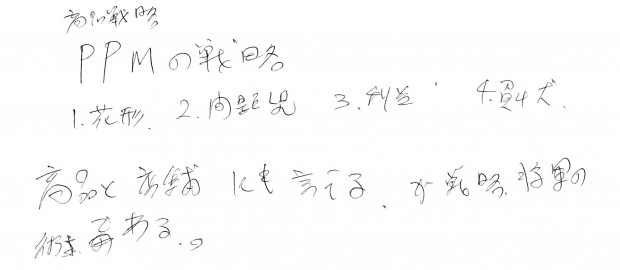 商品戦略
PPMの戦略
1.花形. 2.問題児 3.利益 4.負け犬.
商品と店舗にも言える、が戦略、将軍の
術である。